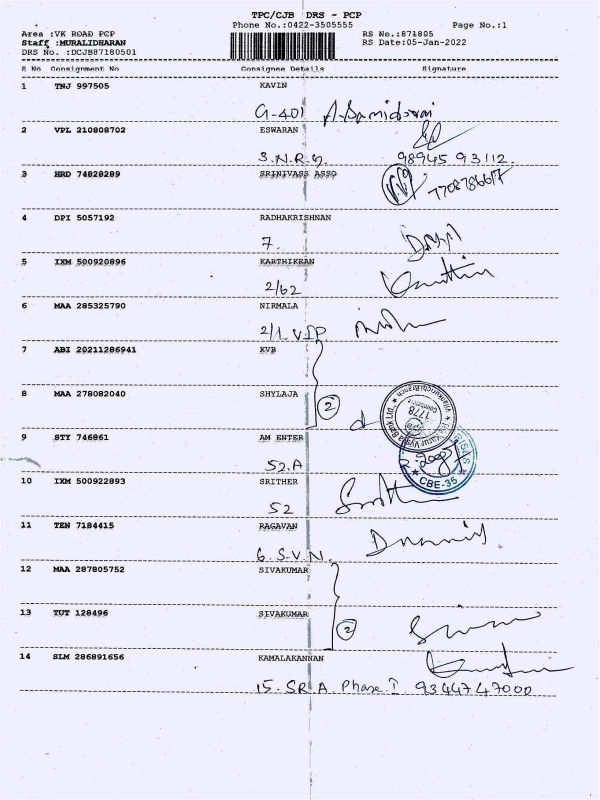 TPC/CJB DRS - PCP
Phone No.:0422-3505555 Page No.:1
Area :VK ROAD PCP RS No.:871805
Staff :MURALIDHARAN RS Date:05-Jan-2022
DRS No. :DCJB87180501
S No Consignment No Consignee Details Signature
1 TNJ 997505 KAVIN
G-401 A.Samidorai
2 VPL 210808702 ESWARAN
3.N.R.G 98945 93112.
3 HRD 74828289 SRINIVASS ASSO
7708786617
4 DPI 5057192 RADHAKRISHNAN
7.
5 IXM 500920896 KARTHIKEAN
2/62
6 MAA 285325790 NIRMALA
2/1. VIP
7 ABI 20211286941 KVB
8 MAA 278082040 SHYLAJA
2
1778
9 STY 746861 AM ENTER
52.A
CBE-35
10 IXM 500922893 SRITHER
52
11 TEN 7184415 RAGAVAN
6.S.V.N.
12 MAA 287805752 SIVAKUMAR
13 TUT 128496 SIVAKUMAR
2
14 SLM 286891656 KAMALAKANNAN
15. SR.A. Phase I 93447 47000